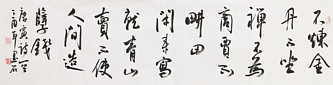 不煉金
丹不坐
禪不為
商賈不
畊田
閑来寫
就青山
賣不使
人間造
孽錢
唐寅詩